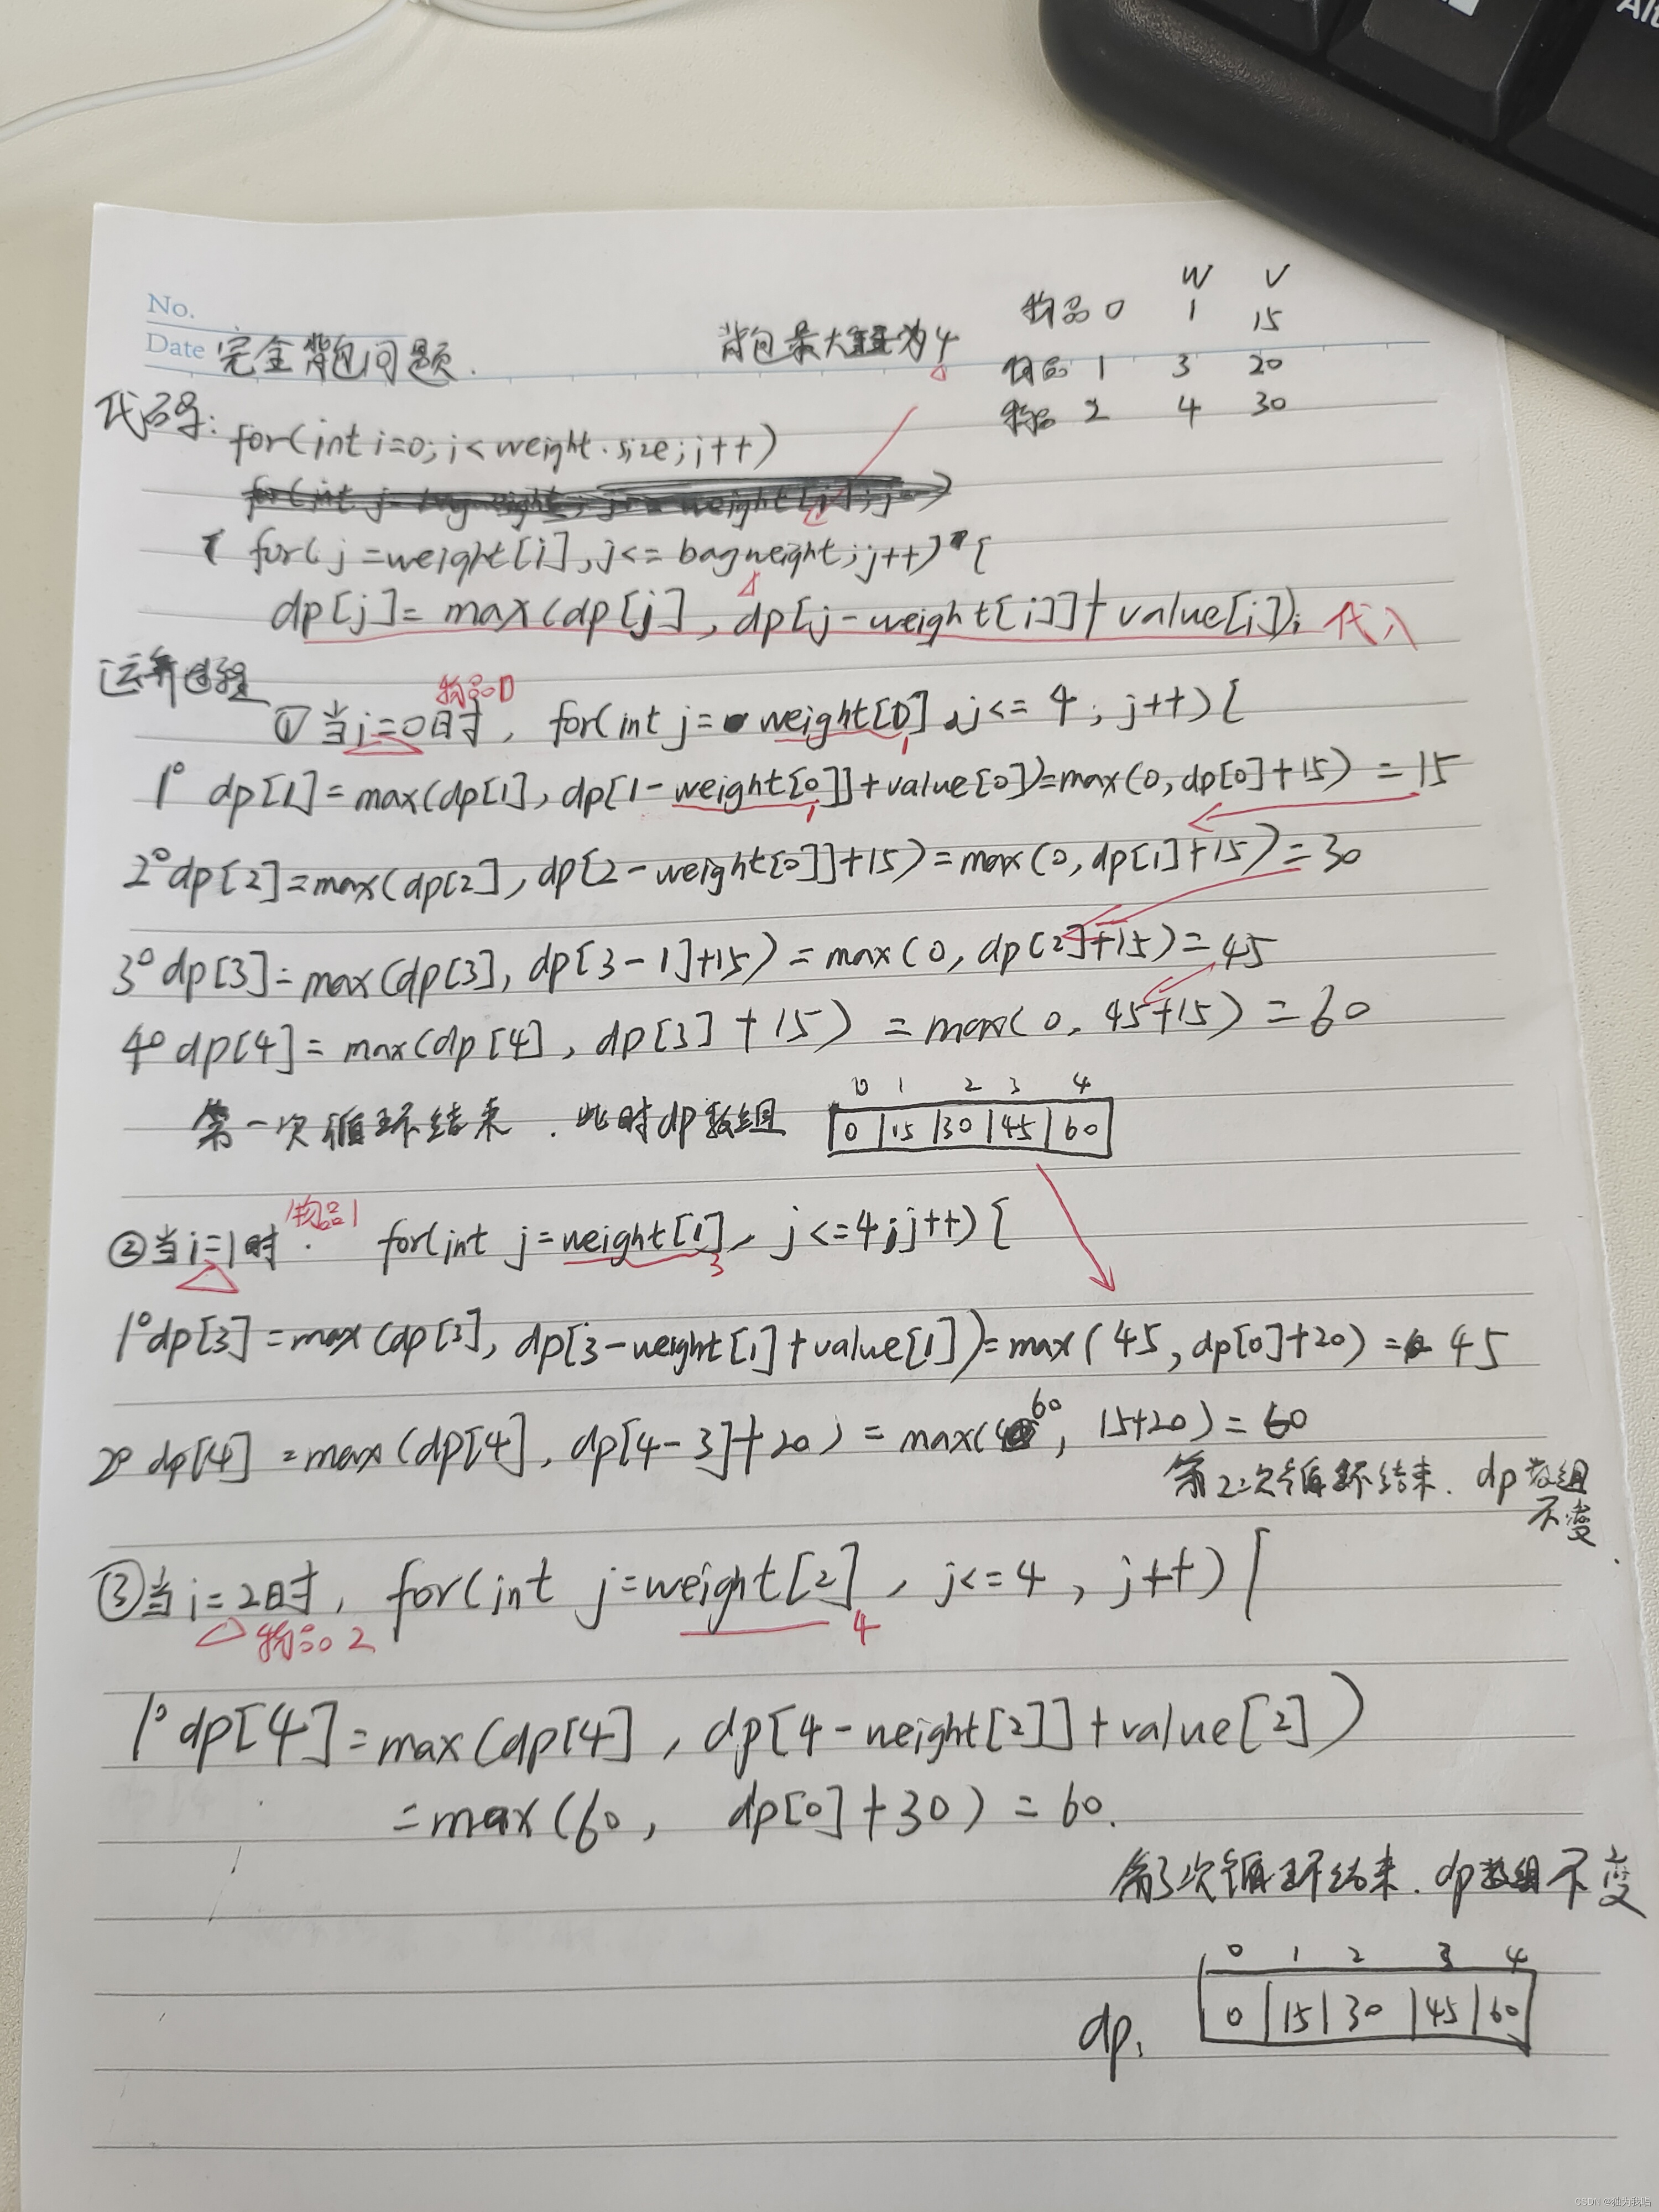 Alt
No.
Date 完全背包问题.
背包最大重量为4
W V
物品 0 1 15
物品 1 3 20
物品 2 4 30
代码:
for(int i=0; i<weight.size; i++)
for(j=weight[i], j<= bagweight; j++) {
dp[j]= max(dp[j], dp[j-weight[i]]+value[i]); 代入
运算过程
物品0
① 当i=0时, for(int j= weight[0], j<= 4; j++) {
1
1° dp[1]=max(dp[1], dp[1-weight[0]]+value[0])=max(0,dp[0]+15) = 15
1
2° dp[2]=max(dp[2], dp[2-weight[0]]+15)=max(0,dp[1]+15)=30
3° dp[3]=max(dp[3], dp[3-1]+15)=max(0, dp[2]+15)=45
4° dp[4]= max(dp[4], dp[3]+15) = max(0, 45+15) = 60
第一次循环结束. 此时dp数组
0 1 2 3 4
0 15 30 45 60
物品1
②当i=1时. for(int j=weight[1], j<=4;j++) {
3
1° dp[3]=max(dp[3], dp[3-weight[1]+value[1])=max(45, dp[0]+20) = 45
2° dp[4] =max(dp[4], dp[4-3]+20) = max(60, 15+20) = 60
第2次循环结束. dp数组
不变.
③当i=2时, for(int j=weight[2], j<=4, j++) {
物品2 4
1° dp[4]=max(dp[4], dp[4-weight[2]]+value[2])
=max(60, dp[0]+30) = 60.
第3次循环结束. dp数组不变
0 1 2 3 4
dp: 0 15 30 45 60
CSDN @独为我唱